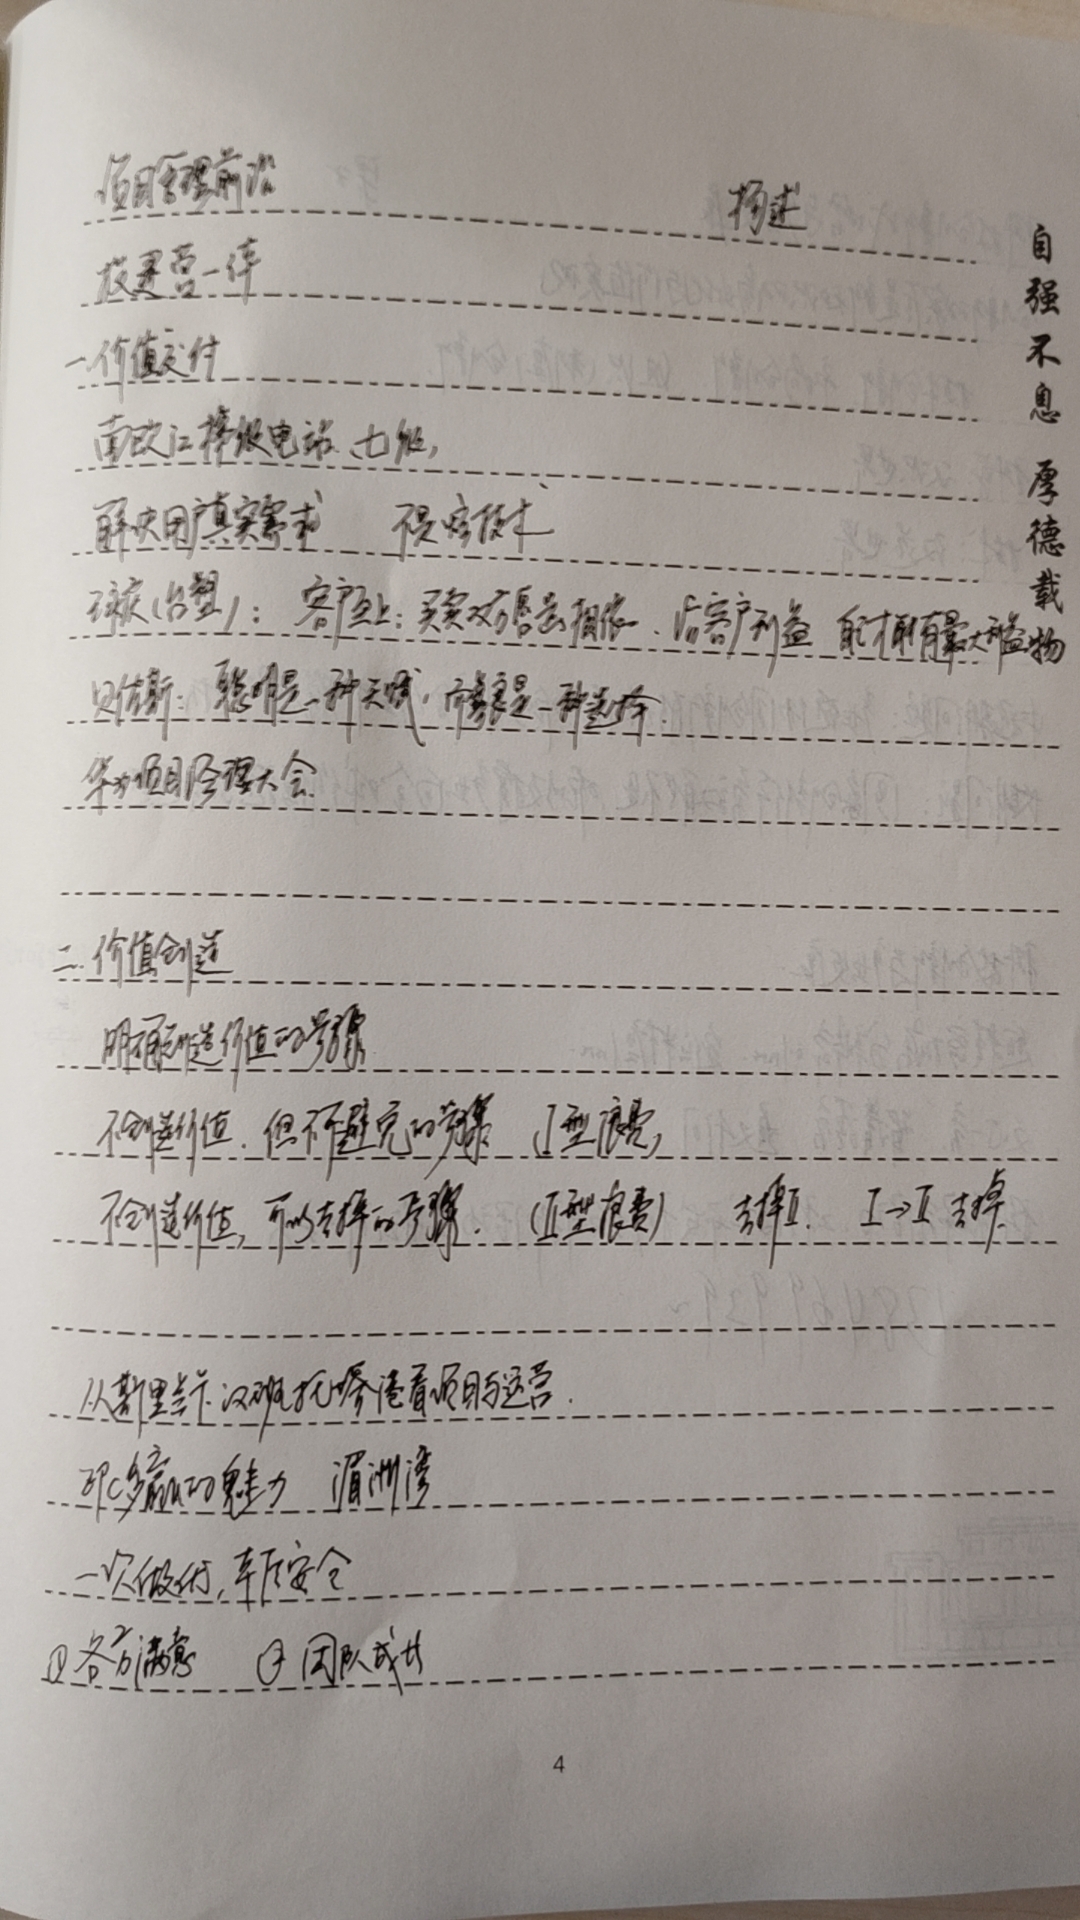 项目管理前沿 杨述
投建营一体
一.价值交付
南欧江梯级电站、七级,
解决用户真实需求 不是炫技术
(台塑): 客户至上: 买卖双方唇齿相依、 客户利益 自己才能有最大利益
贝佐斯: 聪明是一种天赋, 而善良是一种选择.
华为项目管理大会
二.价值创造
明确创造价值的步骤
不创造价值.但不可避免的步骤 I型浪费,
不创造价值,可以去掉的步骤. (II型浪费) 去掉II. I→II 去掉.
从斯里兰卡汉班托塔港看项目与运营.
多赢的魅力 湄洲湾
一次做好, 安全
① 各方满意 ② 团队成长
自强不息 厚德载物
4